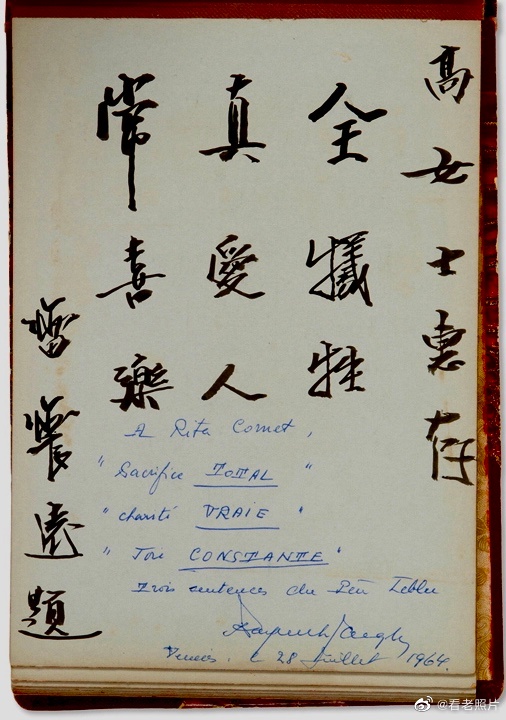 高女士惠存
全犧牲
真愛人
常喜樂
雷震遠題
A Rita Cornet,
"Sacrifice TOTAL"
"charité VRAIE"
"Joie CONSTANTE"
Trois sentences du Père Lebbe
le 28 Juillet 1964.
@看老照片